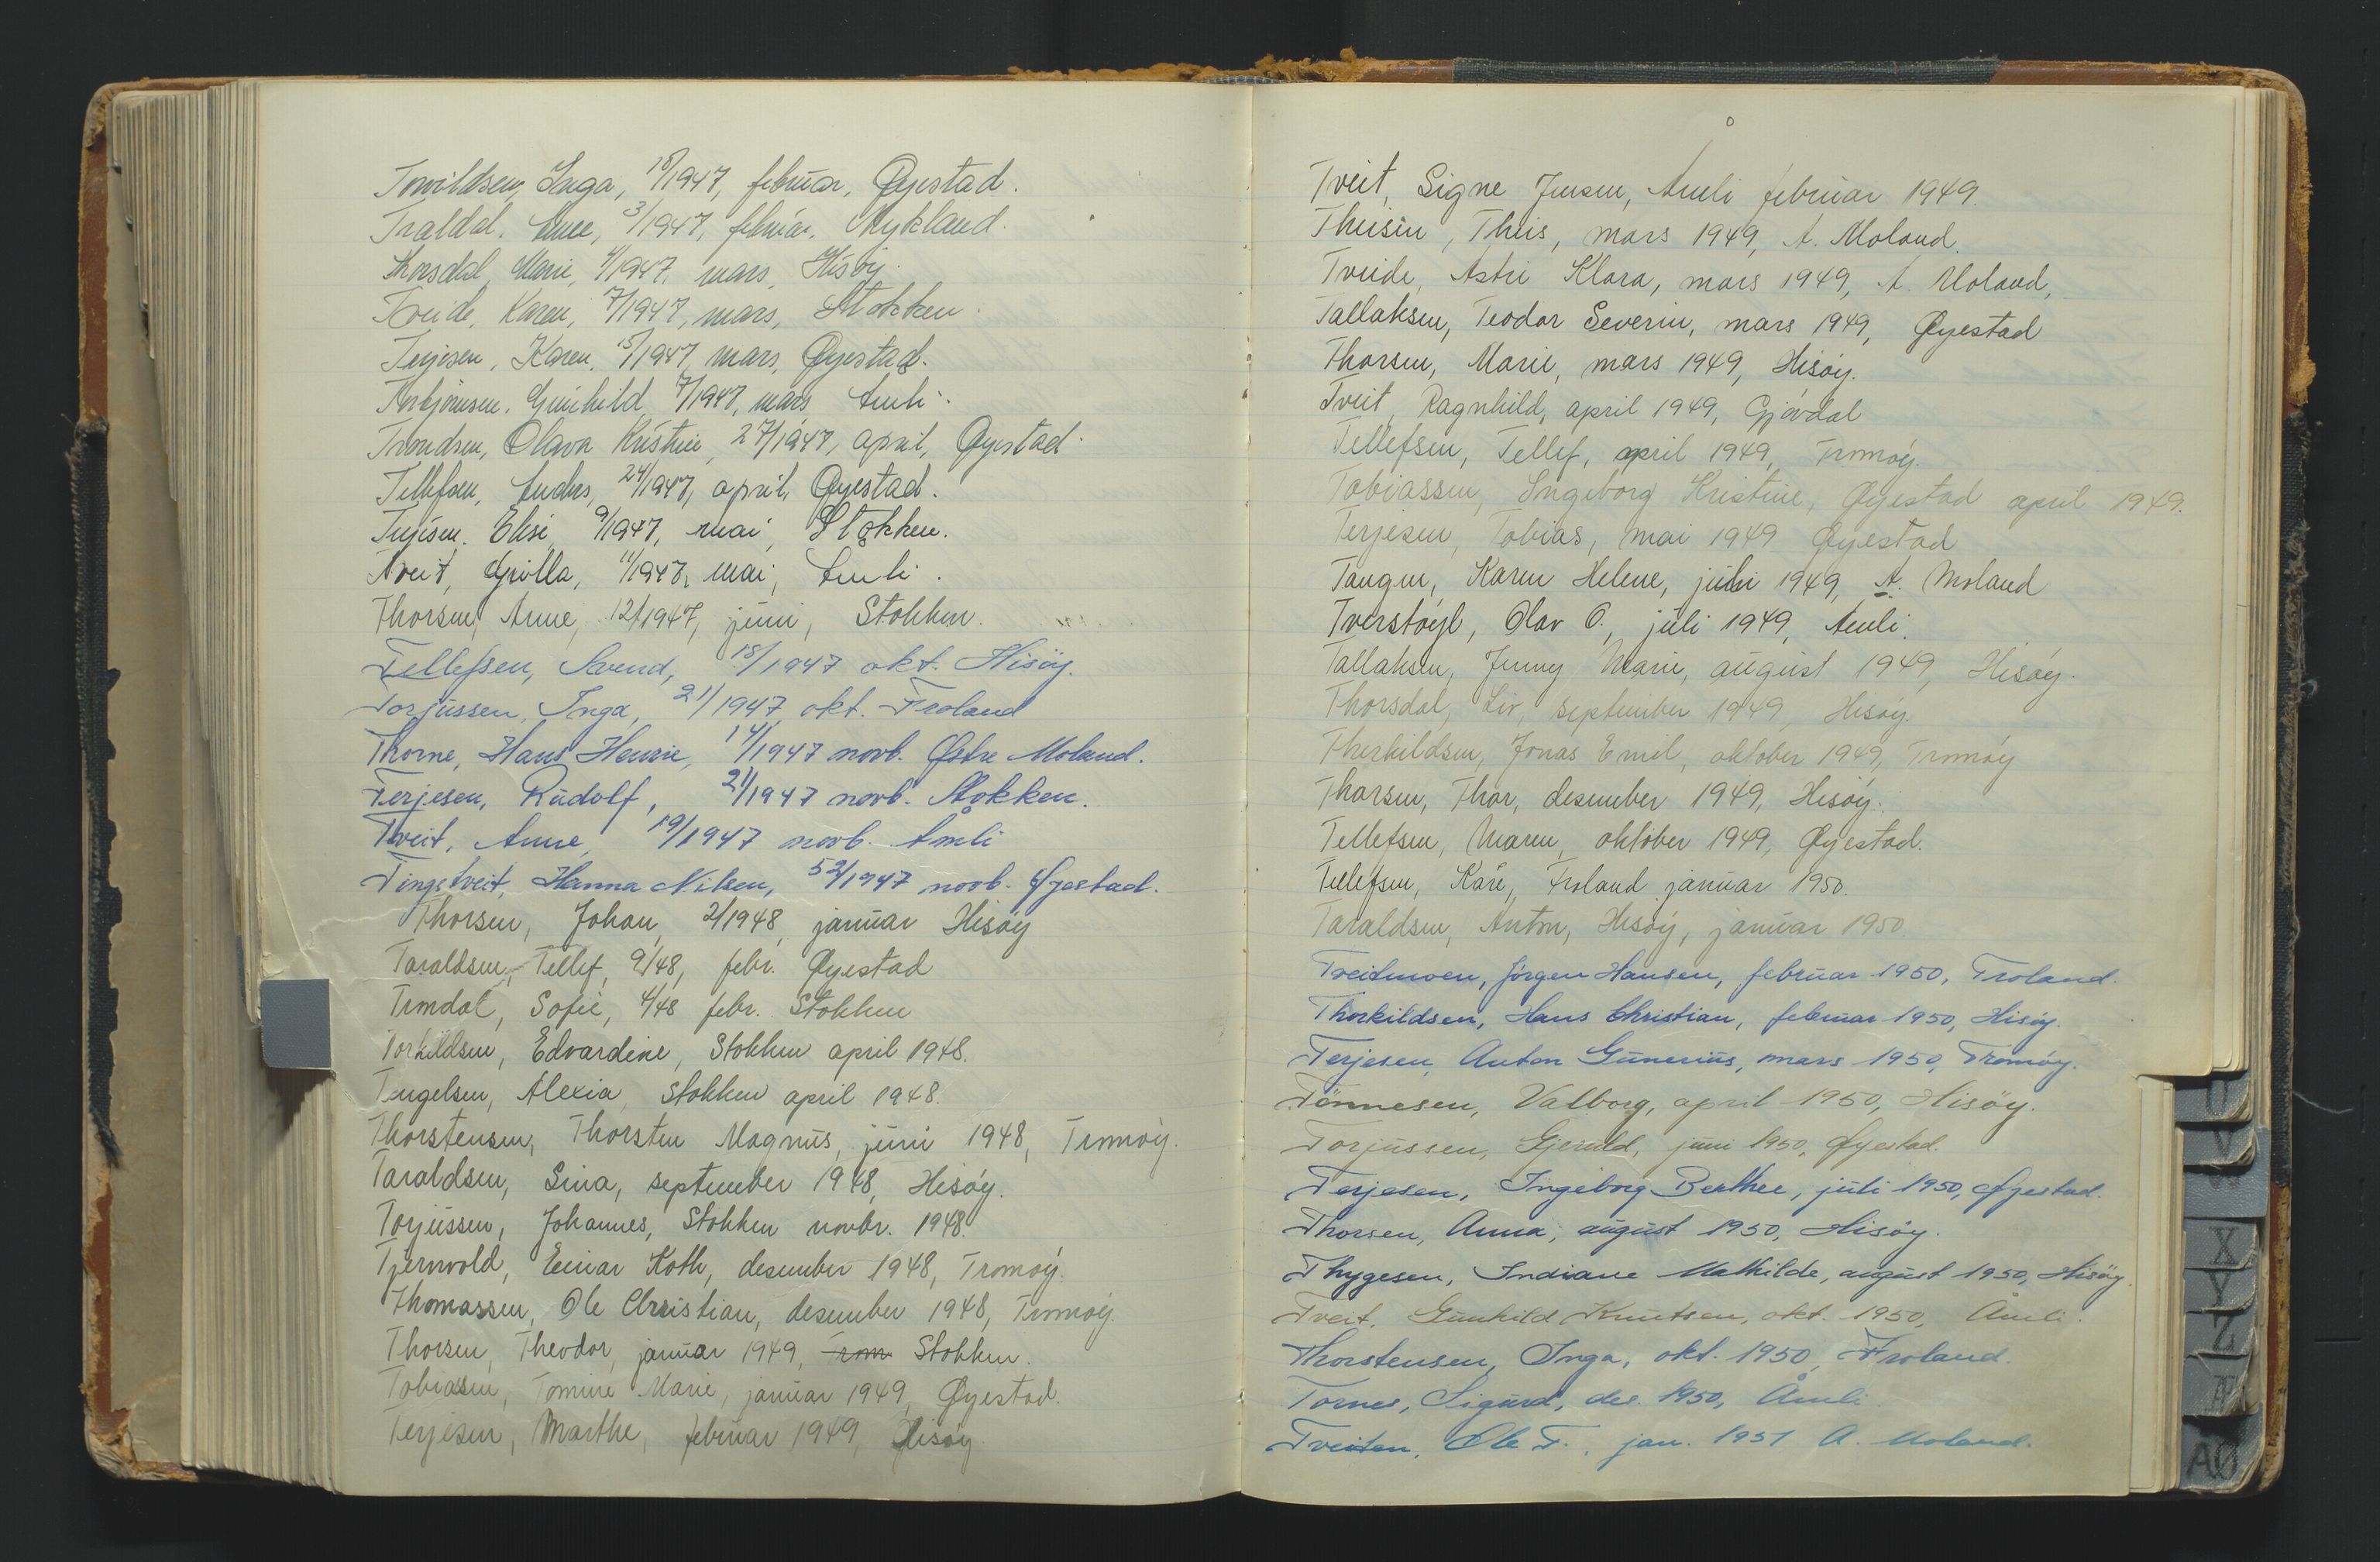 Torvildsen, Inga, 18/1947, februar, Øyestad.
Traldal. Anne, 3/1947, februar, Mykland.
Thorsdal, Marie, 4/1947, mars, Hisøy.
Tveide, Karen, 7/1947, mars, Stokken.
Terjesen, Karen, 15/1947, mars, Øyestad.
Torbjørnsen, Gunhild, 7/1947, mars Åmli.
Trondsen, Olava Kristine, 27/1947, april, Øyestad.
Tellefsen, Anders, 24/1947, april, Øyestad.
Terjesen. Elise, 9/1947, mai, Stokken.
Tveit, Gurilla, 11/1947, mai, Åmli.
Thorsen, Anne, 12/1947, juni, Stokken.
Tellefsen, Svend, 18/1947 okt. Hisøy.
Torjussen, Inga, 21/1947, okt. Froland
Thorne, Hans Henrie, 14/1947 novb. Østre Moland.
Terjesen, Rudolf, 21/1947 novb. Stokken.
Tveit, Anne, 19/1947 novb. Åmli
Tingstveit, Hanna Nilsen, 52/1947 novb. Øyestad.
Thorsen, Johan, 2/1948, januar Hisøy
Taraldsen, Tellef, 9/48, febr. Øyestad
Tromdal, Sofie, 4/48 febr. Stokken
Torkildsen, Edvardine, Stokken april 1948.
Tengelsen, Alexia, Stokken april 1948.
Thorstensen, Thorsten Magnus, juni 1948, Tromøy.
Taraldsen, Sina, september 1948, Hisøy.
Torjussen, Johannes, Stokken novbr. 1948.
Tjernvold, Einar Koth, desember 1948, Tromøy.
Thomassen, Ole Christian, desember 1948, Tromøy.
Thorsen, Theodor, januar 1949, Stokken.
Tobiasen, Tomine Marie, januar 1949, Øyestad.
Terjesen, Marthe, februar 1949, Hisøy
Tveit, Signe Jensen, Åmli februar 1949.
Theisen, Theis, mars 1949, A. Moland.
Tveide, Astri Klara, mars 1949, A. Moland,
Tallaksen, Teodor Severin, mars 1949, Øyestad
Thorsen, Marie, mars 1949, Hisøy.
Tveit, Ragnhild, april 1949, Gjøvdal
Tellefsen, Tellef, april 1949, Tromøy.
Tobiassen, Ingeborg Kristine, Øyestad april 1949.
Terjesen, Tobias, mai 1949 Øyestad
Tangen, Karen Helene, juli 1949, A. Moland
Tverstøyl, Olav O., juli 1949, Åmli.
Tallaksen, Jenny Marie, august 1949, Hisøy.
Thorsdal, Liv, september 1949, Hisøy.
Therkildsen, Jonas Emil, oktober 1949, Tromøy
Thorsen, Thor, desember 1949, Hisøy.
Tellefsen, Maren, oktober 1949, Øyestad.
Tellefsen, Kåre, Froland januar 1950.
Taraldsen, Anton, Hisøy, januar 1950
Tveitmoen, Jørgen Hansen, februar 1950, Froland.
Thorkildsen, Hans Christian, februar 1950, Hisøy.
Terjesen, Anton Gunerius, mars 1950, Tromøy.
Tönnesen, Valborg, april 1950, Hisøy.
Torjussen, Gjeruld, juni 1950, Øyestad.
Terjesen, Ingeborg Berthee, juli 1950, Øyestad.
Thorsen, Anna, august 1950, Hisøy.
Thygesen, Indiane Mathilde, august 1950, Hisøy.
Tveit, Gunhild Knutsen, okt. 1950, Åmli.
Thorstensen, Inga, okt. 1950, Froland.
Tornes, Sigurd, des. 1950, Åmli
Tveiten, Ole T., jan. 1951 A. Moland.
U
V
X
Y
Z
Æ
AØ